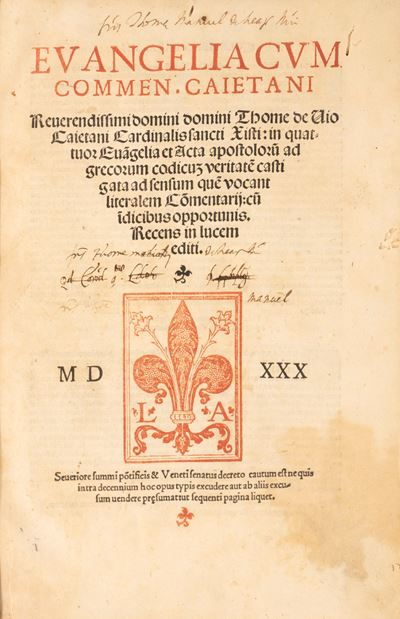 EVANGELIA CVM
COMMEN. CAIETANI
Reuerendissimi domini domini Thome de Uio
Caietani Cardinalis sancti Xisti: in quat-
tuor Euãgelia et Acta apostolorũ ad
grecorum codicuz veritatẽ casti
gata ad sensum quẽ vocant
literalem Cõmentarij: cũ
ĩdicibus opportunis.
Recens in lucem
editi.
manuel
L A
M D XXX
Seueriore summi põtificis & Veneti senatus decreto cautum est ne quis
intra decennium hoc opus typis excudere aut ab aliis excu-
sum uendere pręsumat ut sequenti pagina liquet.